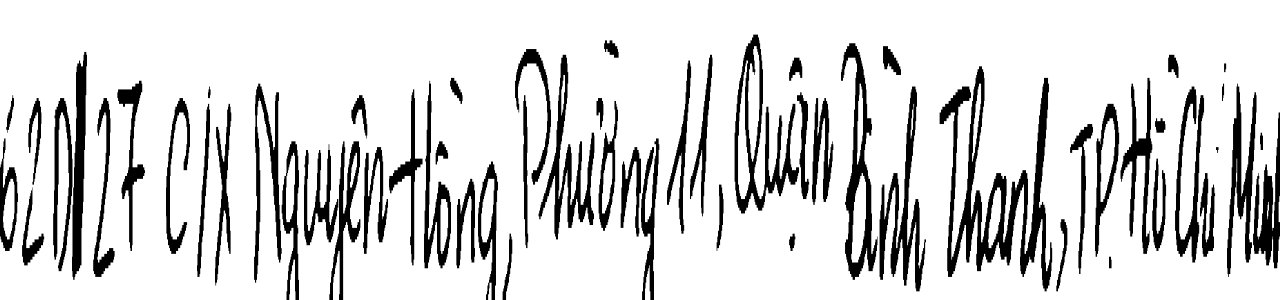 620/27 C/X Nguyên Hồng, Phường 11, Quận Bình Thanh, TP. Hồ Chí Minh